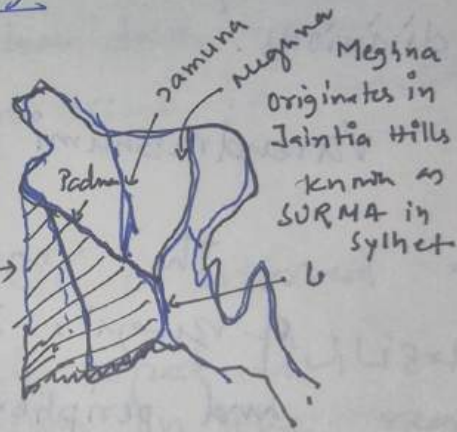 Jamuna
Meghna
Meghna
originates in
Jaintia Hills
known as
SURMA in
Sylhet
Padma